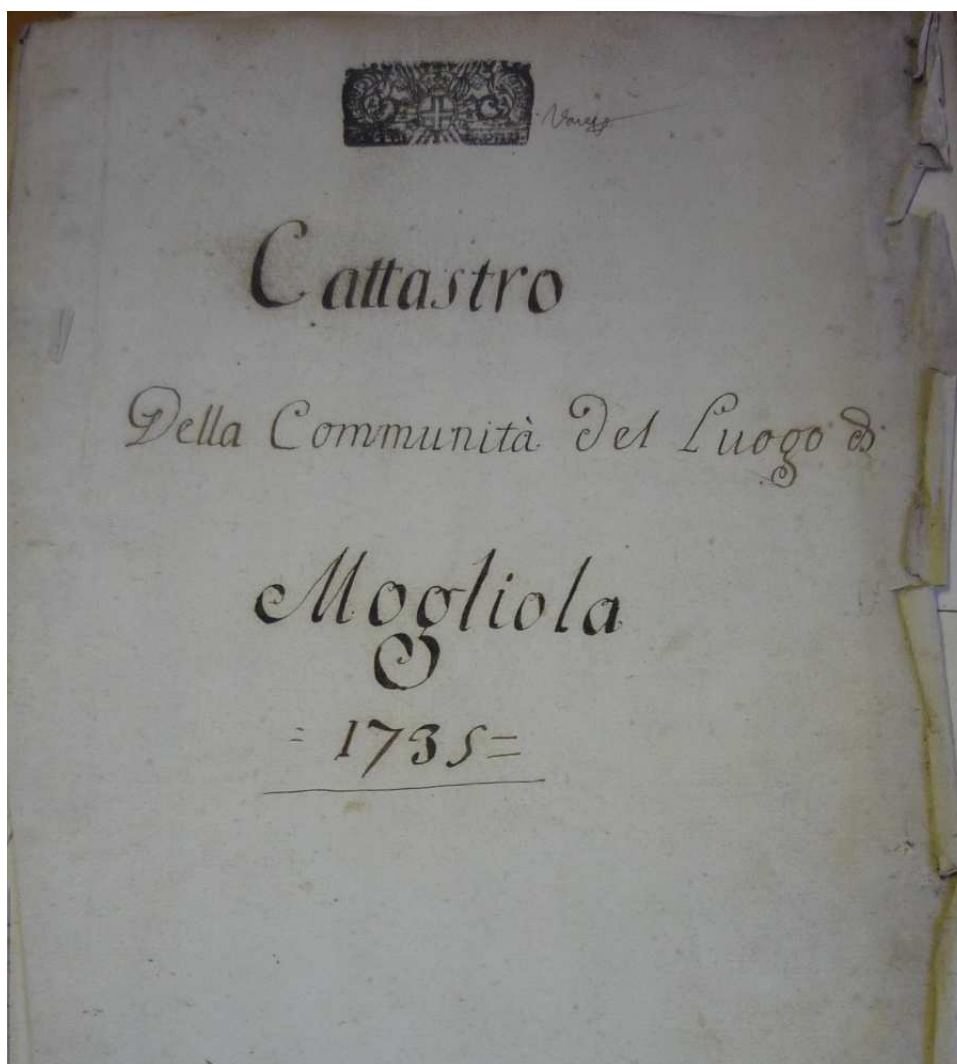 Cattastro
Della Communità Del Luogo di
Mogliola
= 1735 =